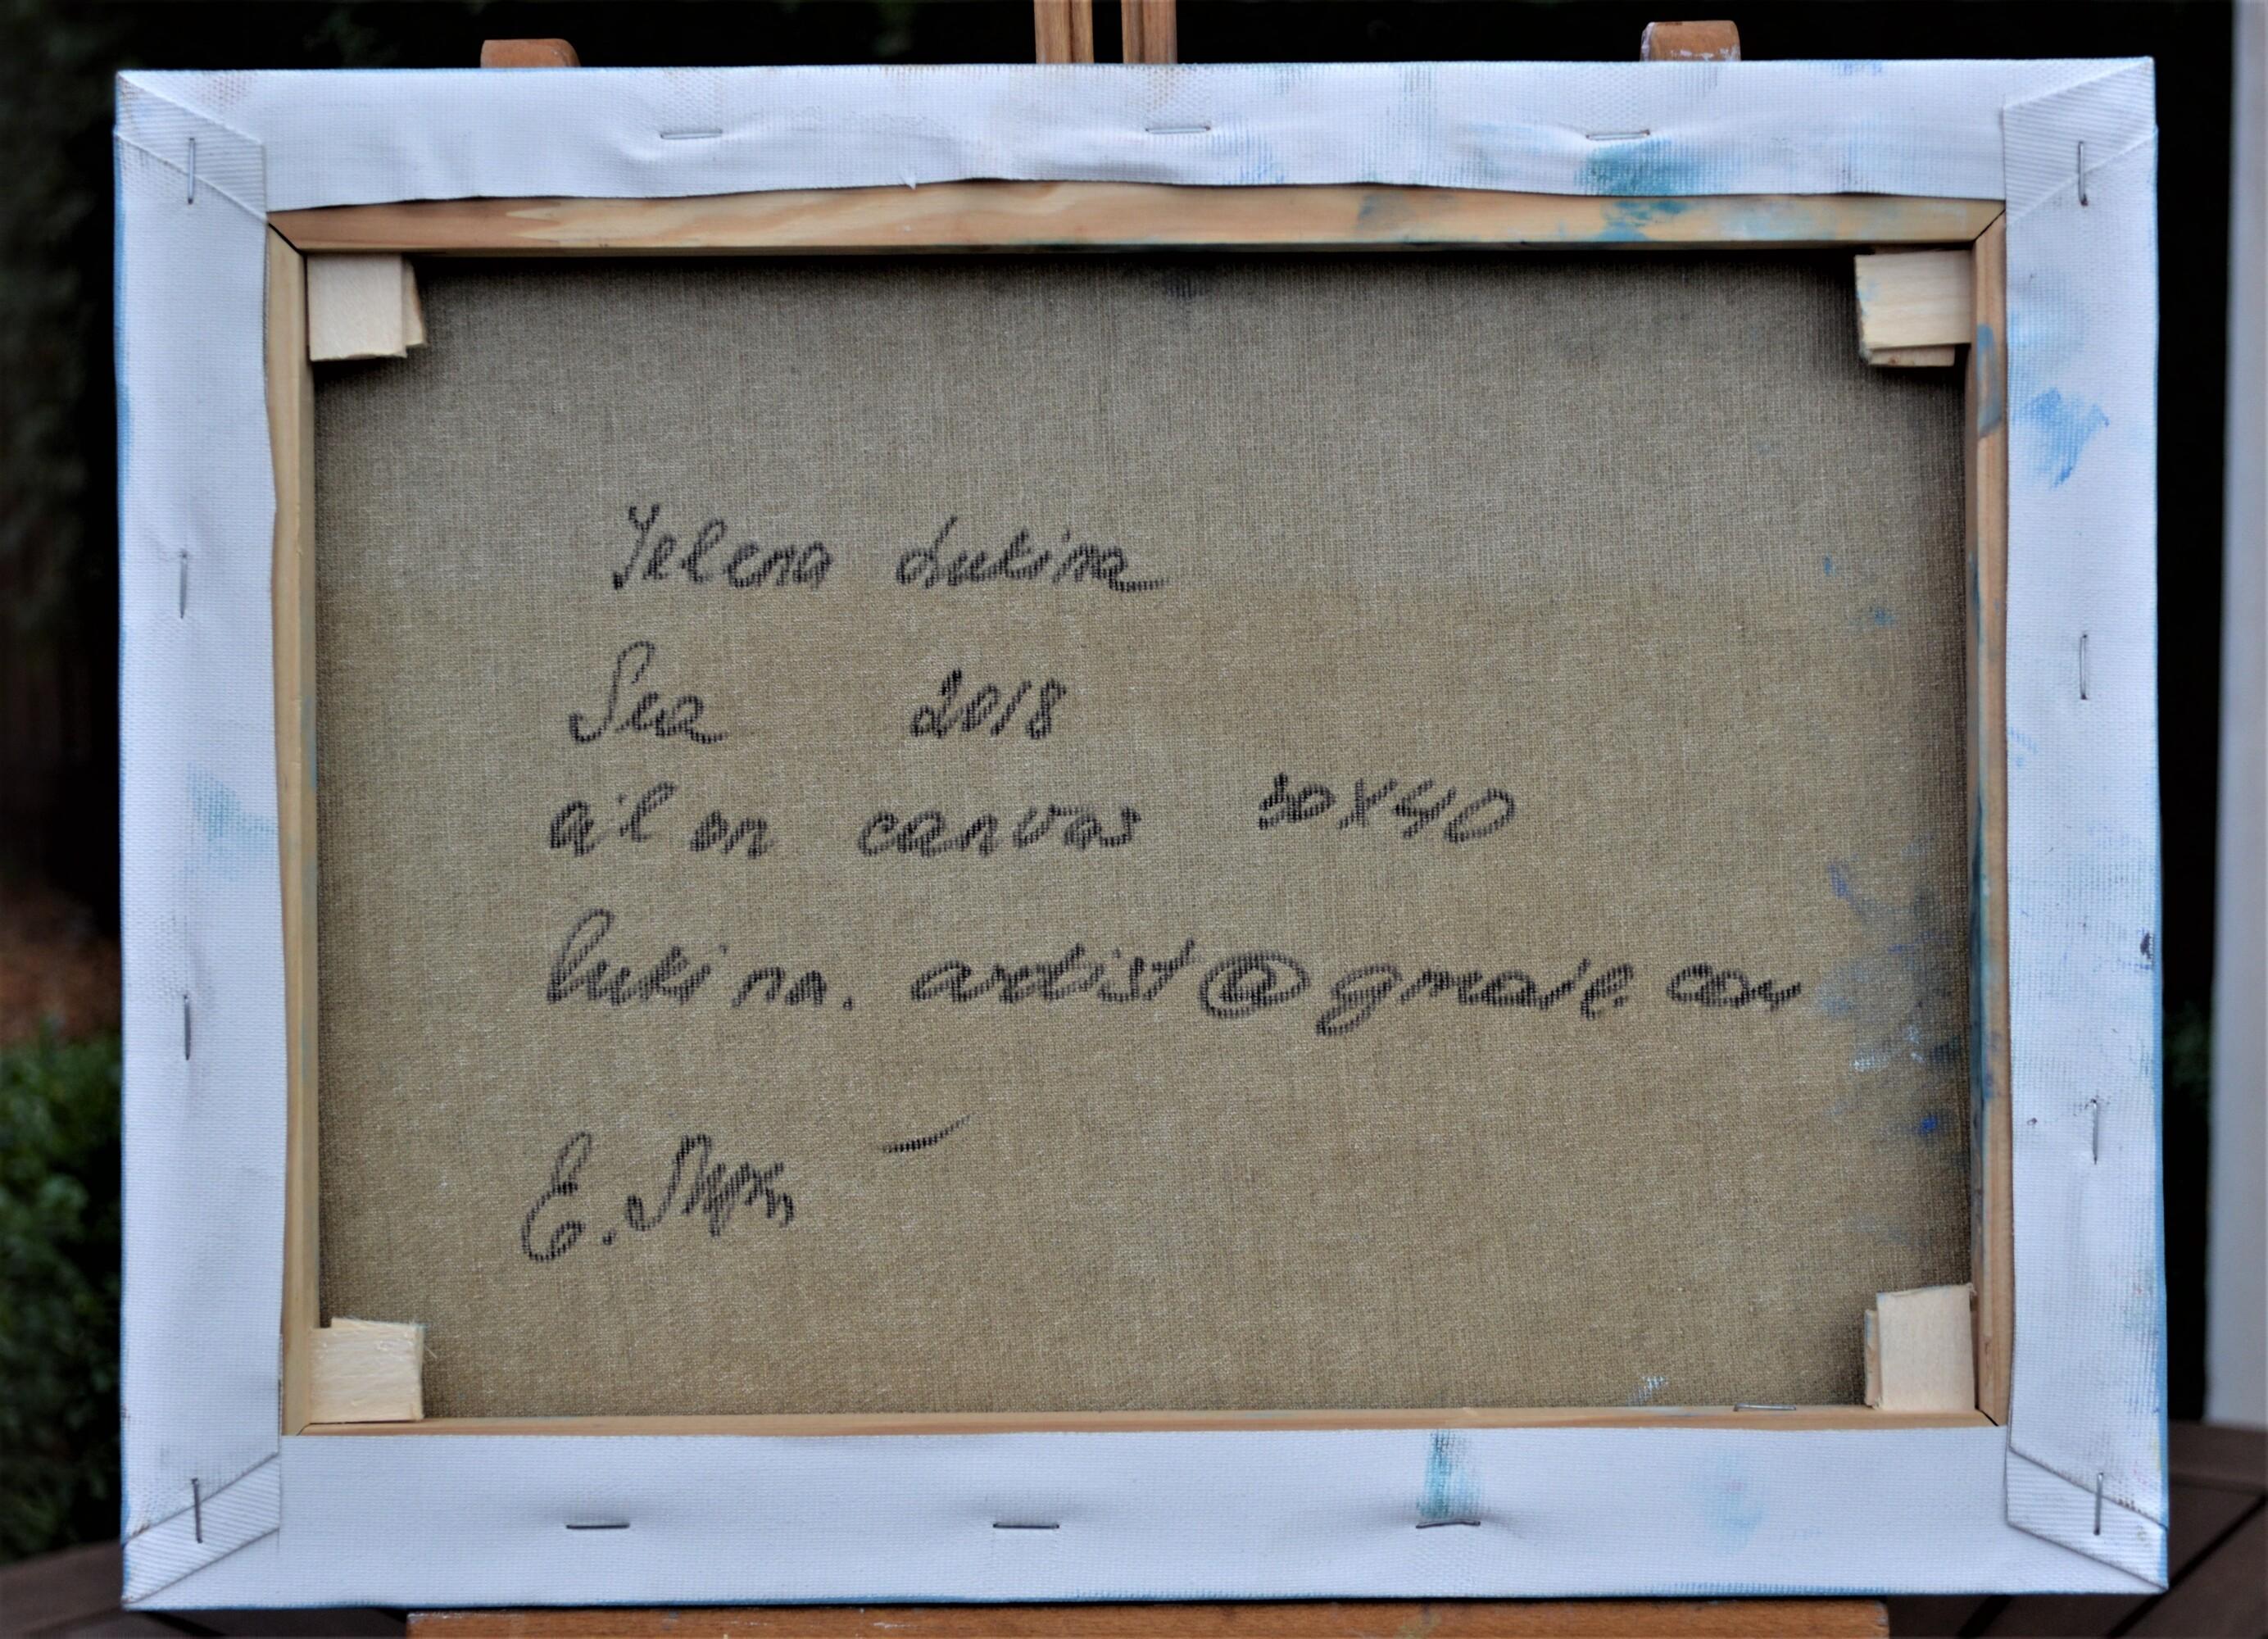 Yelena Lukina
Sea 2018
oil on canvas 30X40
lukina.artist@gmail.com
E.